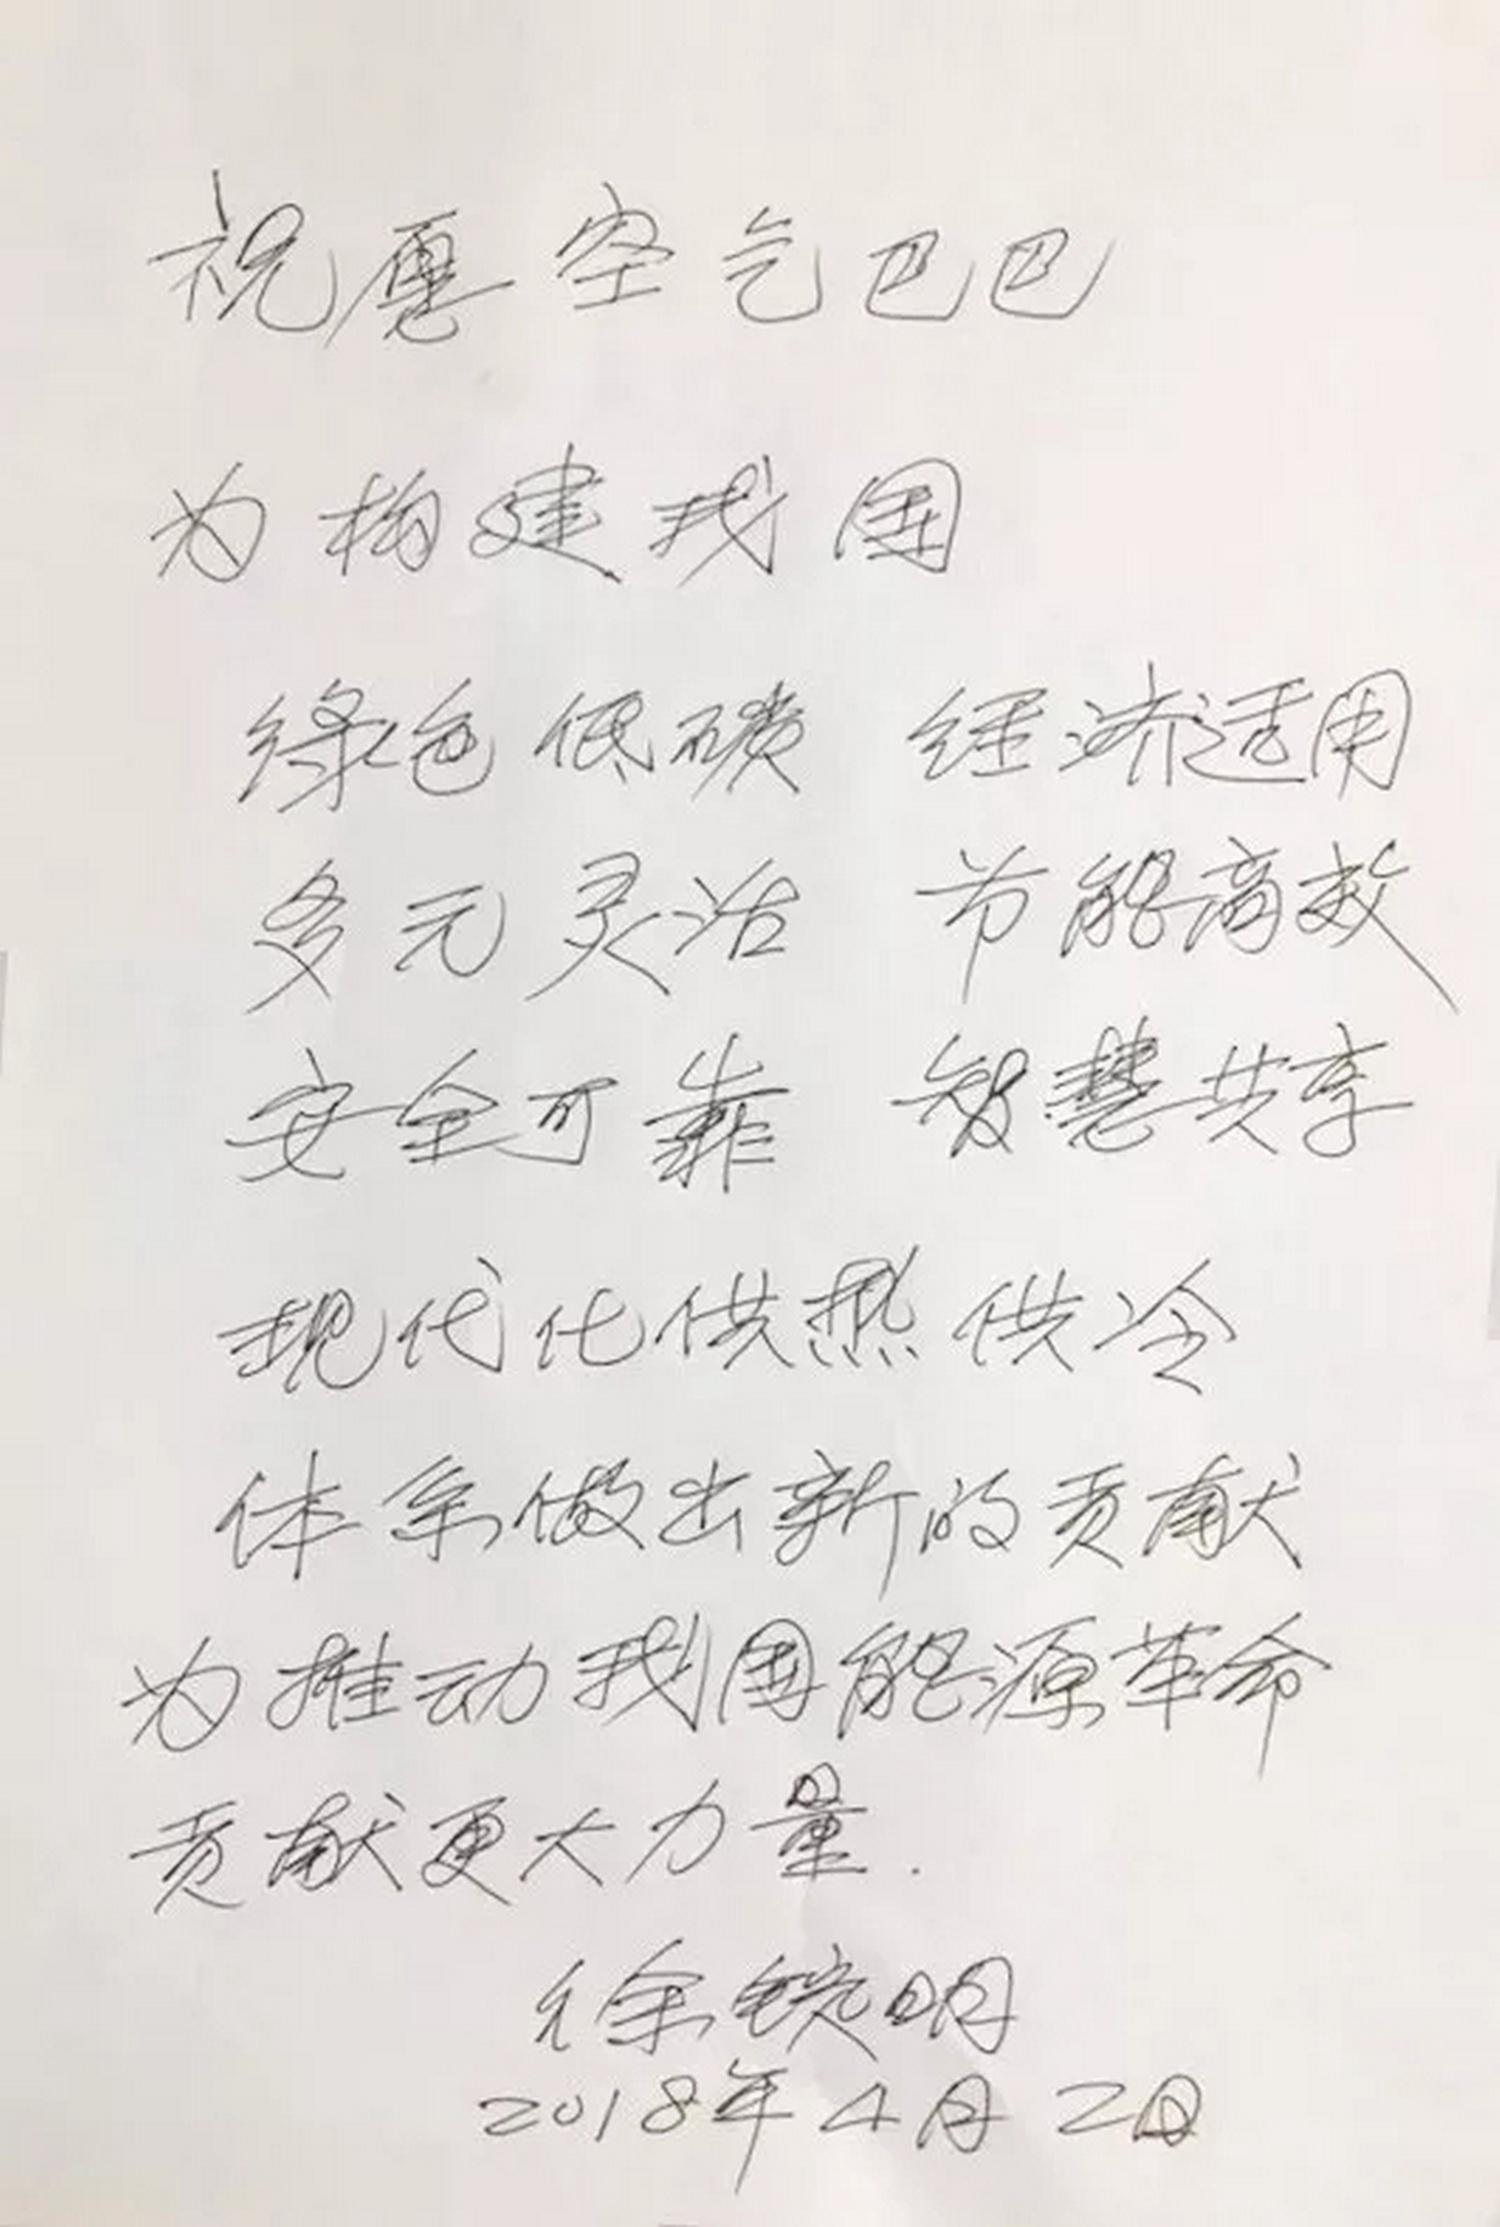 祝愿空气巴巴
为构建我国
绿色低碳 经济适用
多元灵活 节能高效
安全可靠 智慧共享
现代化供热供冷
体系做出新的贡献
为推动我国能源革命
贡献更大力量.
徐锭明
2018年4月2日